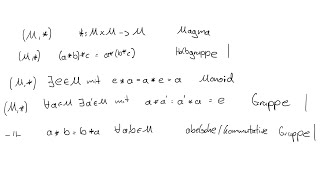 (M,*) *: M×M → M Magma
(M,*) (a*b)*c = a*(b*c) Halbgruppe
(M,*) ∃e∈M mit e*a=a*e=a Monoid
(M,*) ∀a∈M ∃a'∈M mit a*a'=a'*a=e Gruppe
-"- a*b=b*a ∀a,b∈M abelsche/kommutative Gruppe